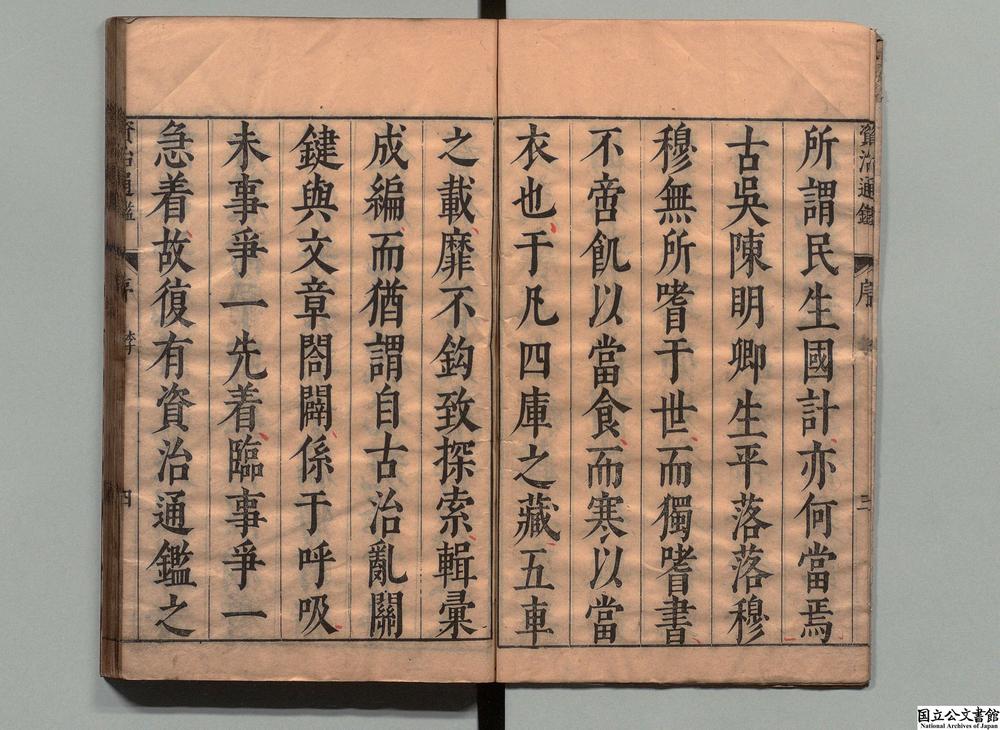 資治通鑑 序 三
所謂民生國計亦何當焉
古吳陳明卿生平落落穆
穆無所嗜于世而獨嗜書
不啻飢以當食而寒以當
衣也于凡四庫之藏五車
之載靡不鈎致探索輯彙
成編而猶謂自古治亂關
鍵與文章闔闢係于呼吸
未事爭一先着臨事爭一
急着故復有資治通鑑之
資治通鑑 序 四
国立公文書館
National Archives of Japan